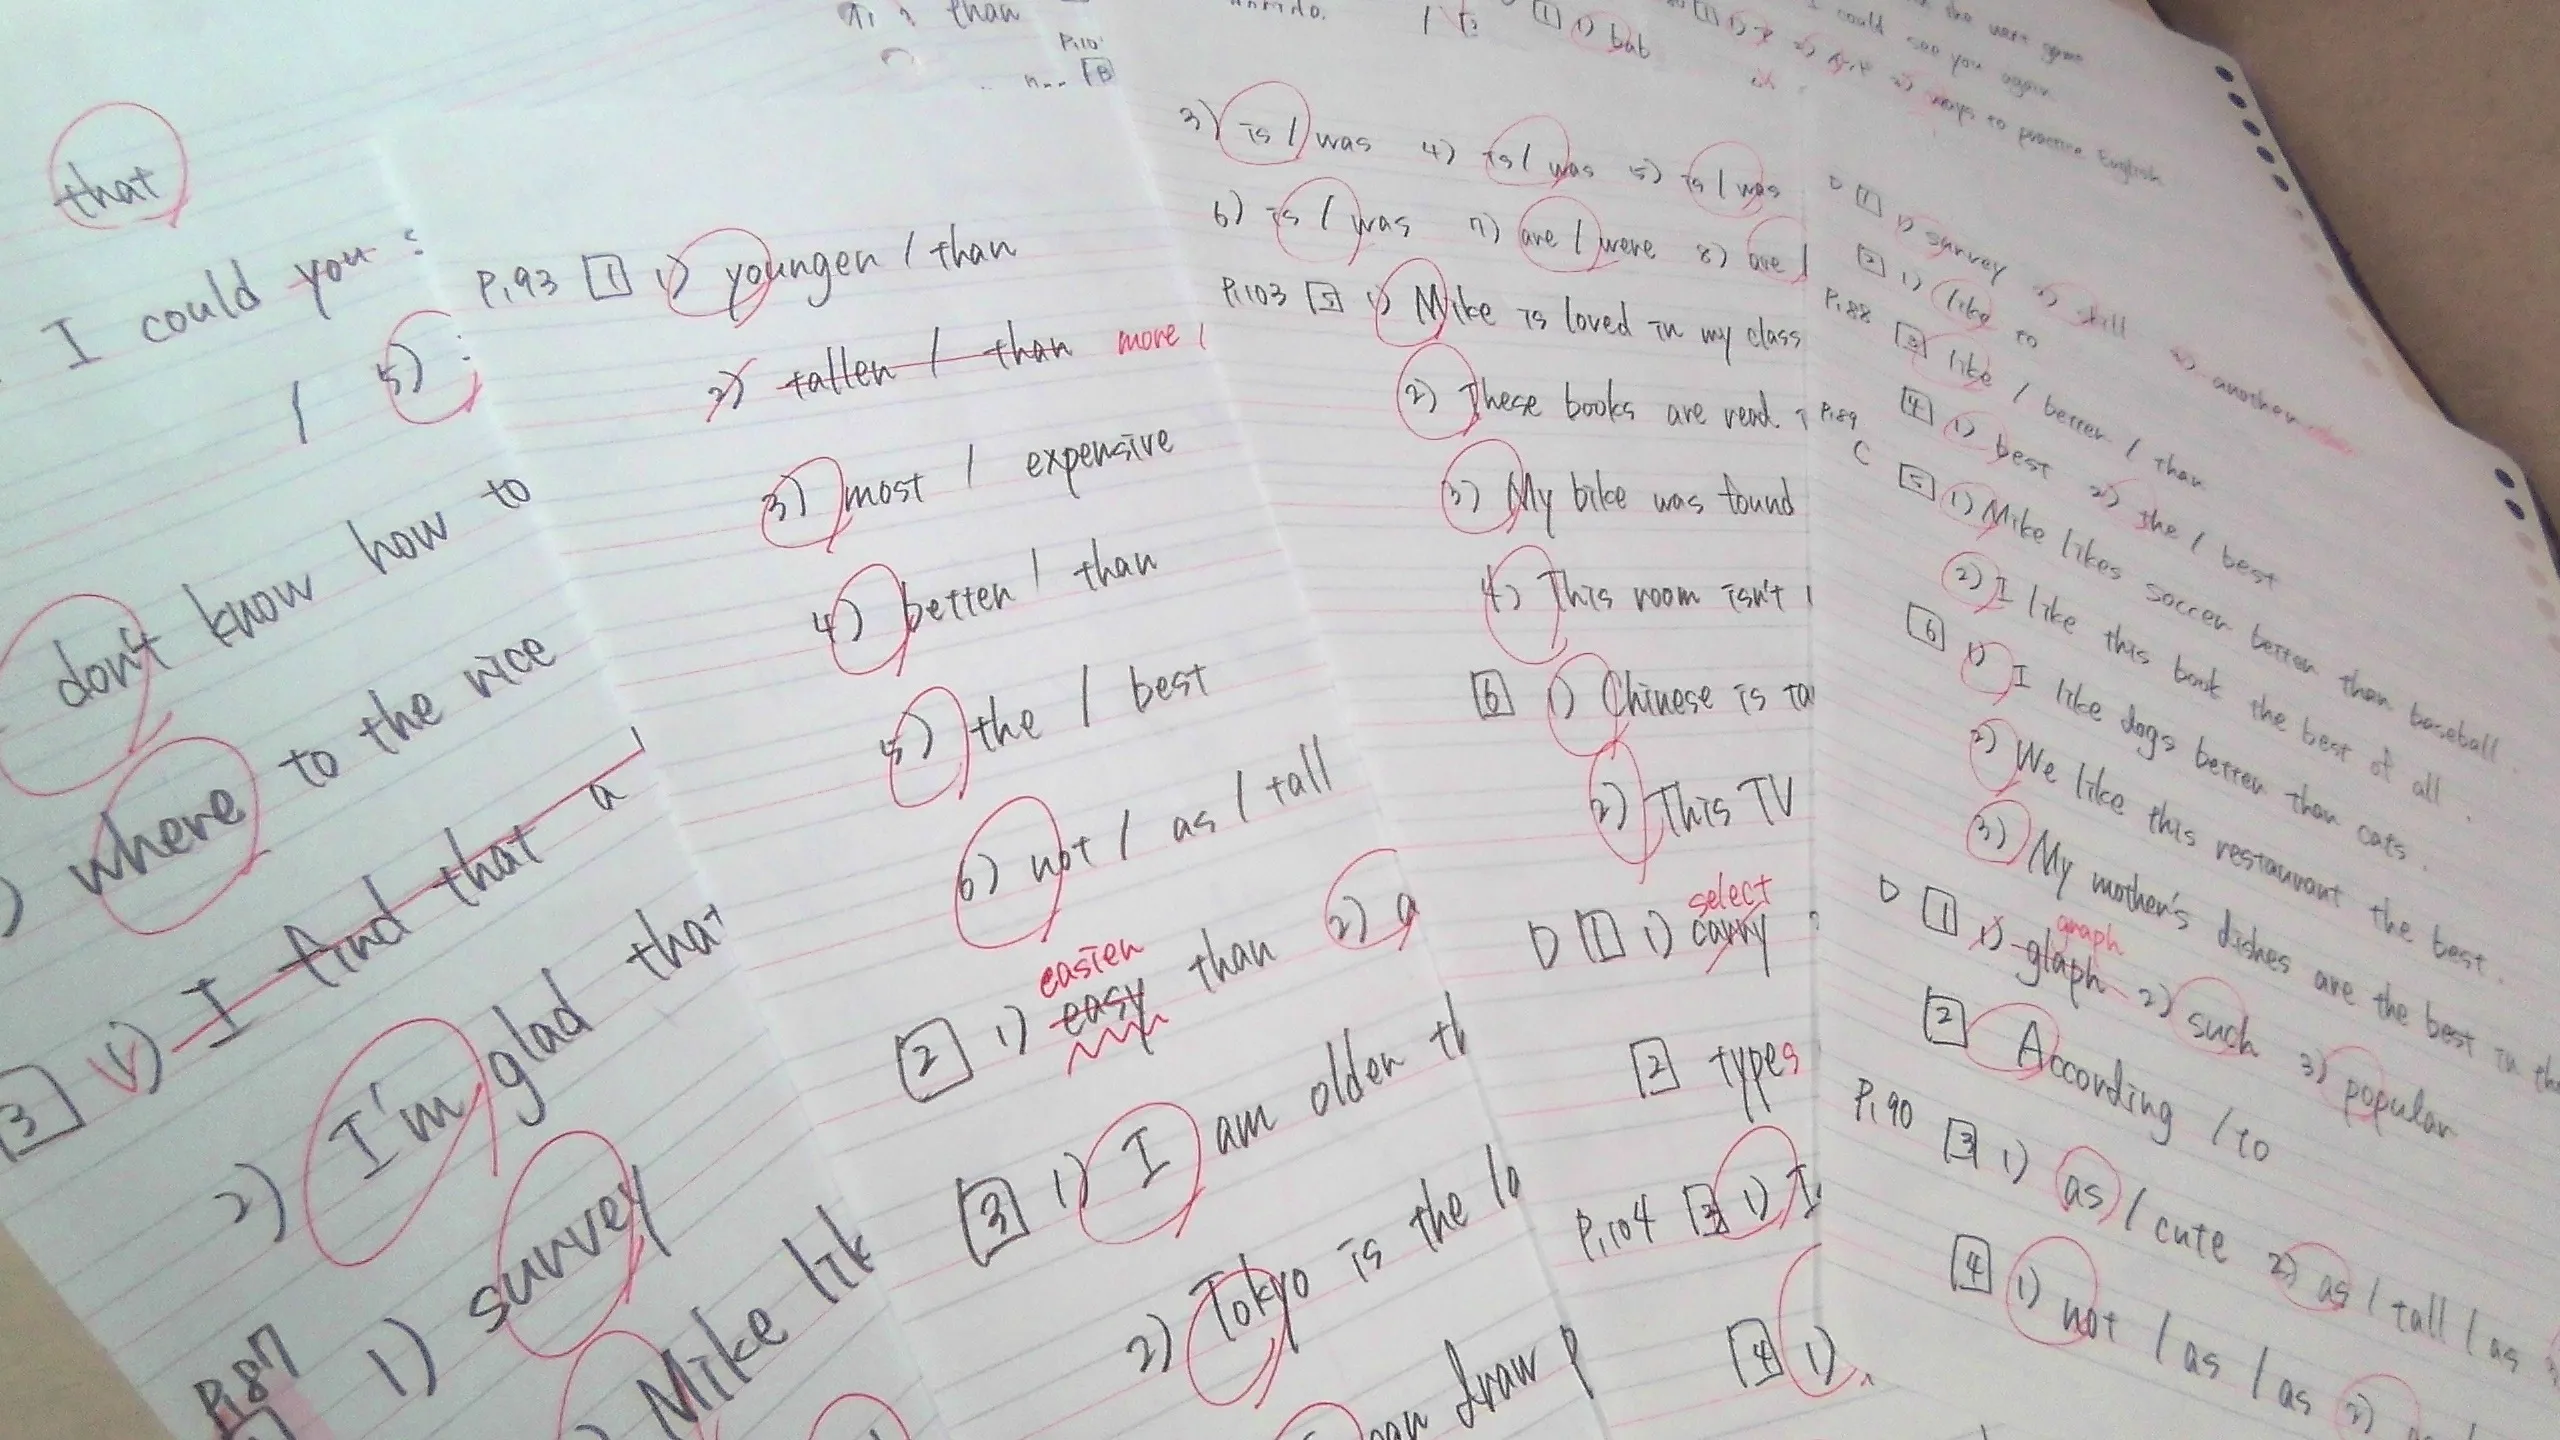 that
I could you
5)
don't know how to
where to the rice
I find that a
3 1)
2) I'm glad that
P.87
1) survey
Mike lik
than
P.93 1 1) younger / than
2) taller / than more
3) most / expensive
4) better / than
5) the / best
6) not / as / tall
easier
2 1) easy than 2) a
3 1) I am older th
2) Tokyo is the lo
draw p
1 1) bab
3) is / was 4) is / was 5) is / was
6) is / was 7) are / were 8) are /
P.103 5 1) Mike is loved in my class
2) These books are read
3) My bike was found
4) This room isn't
6 1) Chinese is ta
2) This TV
select
D 1 1) carry
2 types
P.104 3 1) I
4 1)
the next game
I could see you again
ways to practice English
D 1 1) survey 2) still 3) another
2 1) like to
P.88 3 like / better / than
P.89 4 1) best 2) the / best
C 5 1) Mike likes soccer better than baseball.
2) I like this book the best of all.
6 1) I like dogs better than cats.
2) We like this restaurant the best.
3) My mother's dishes are the best in the
graph
D 1 1) glaph 2) such 3) popular
2 According / to
P.90 3 1) as / cute 2) as / tall / as
4 1) not / as / as 2)